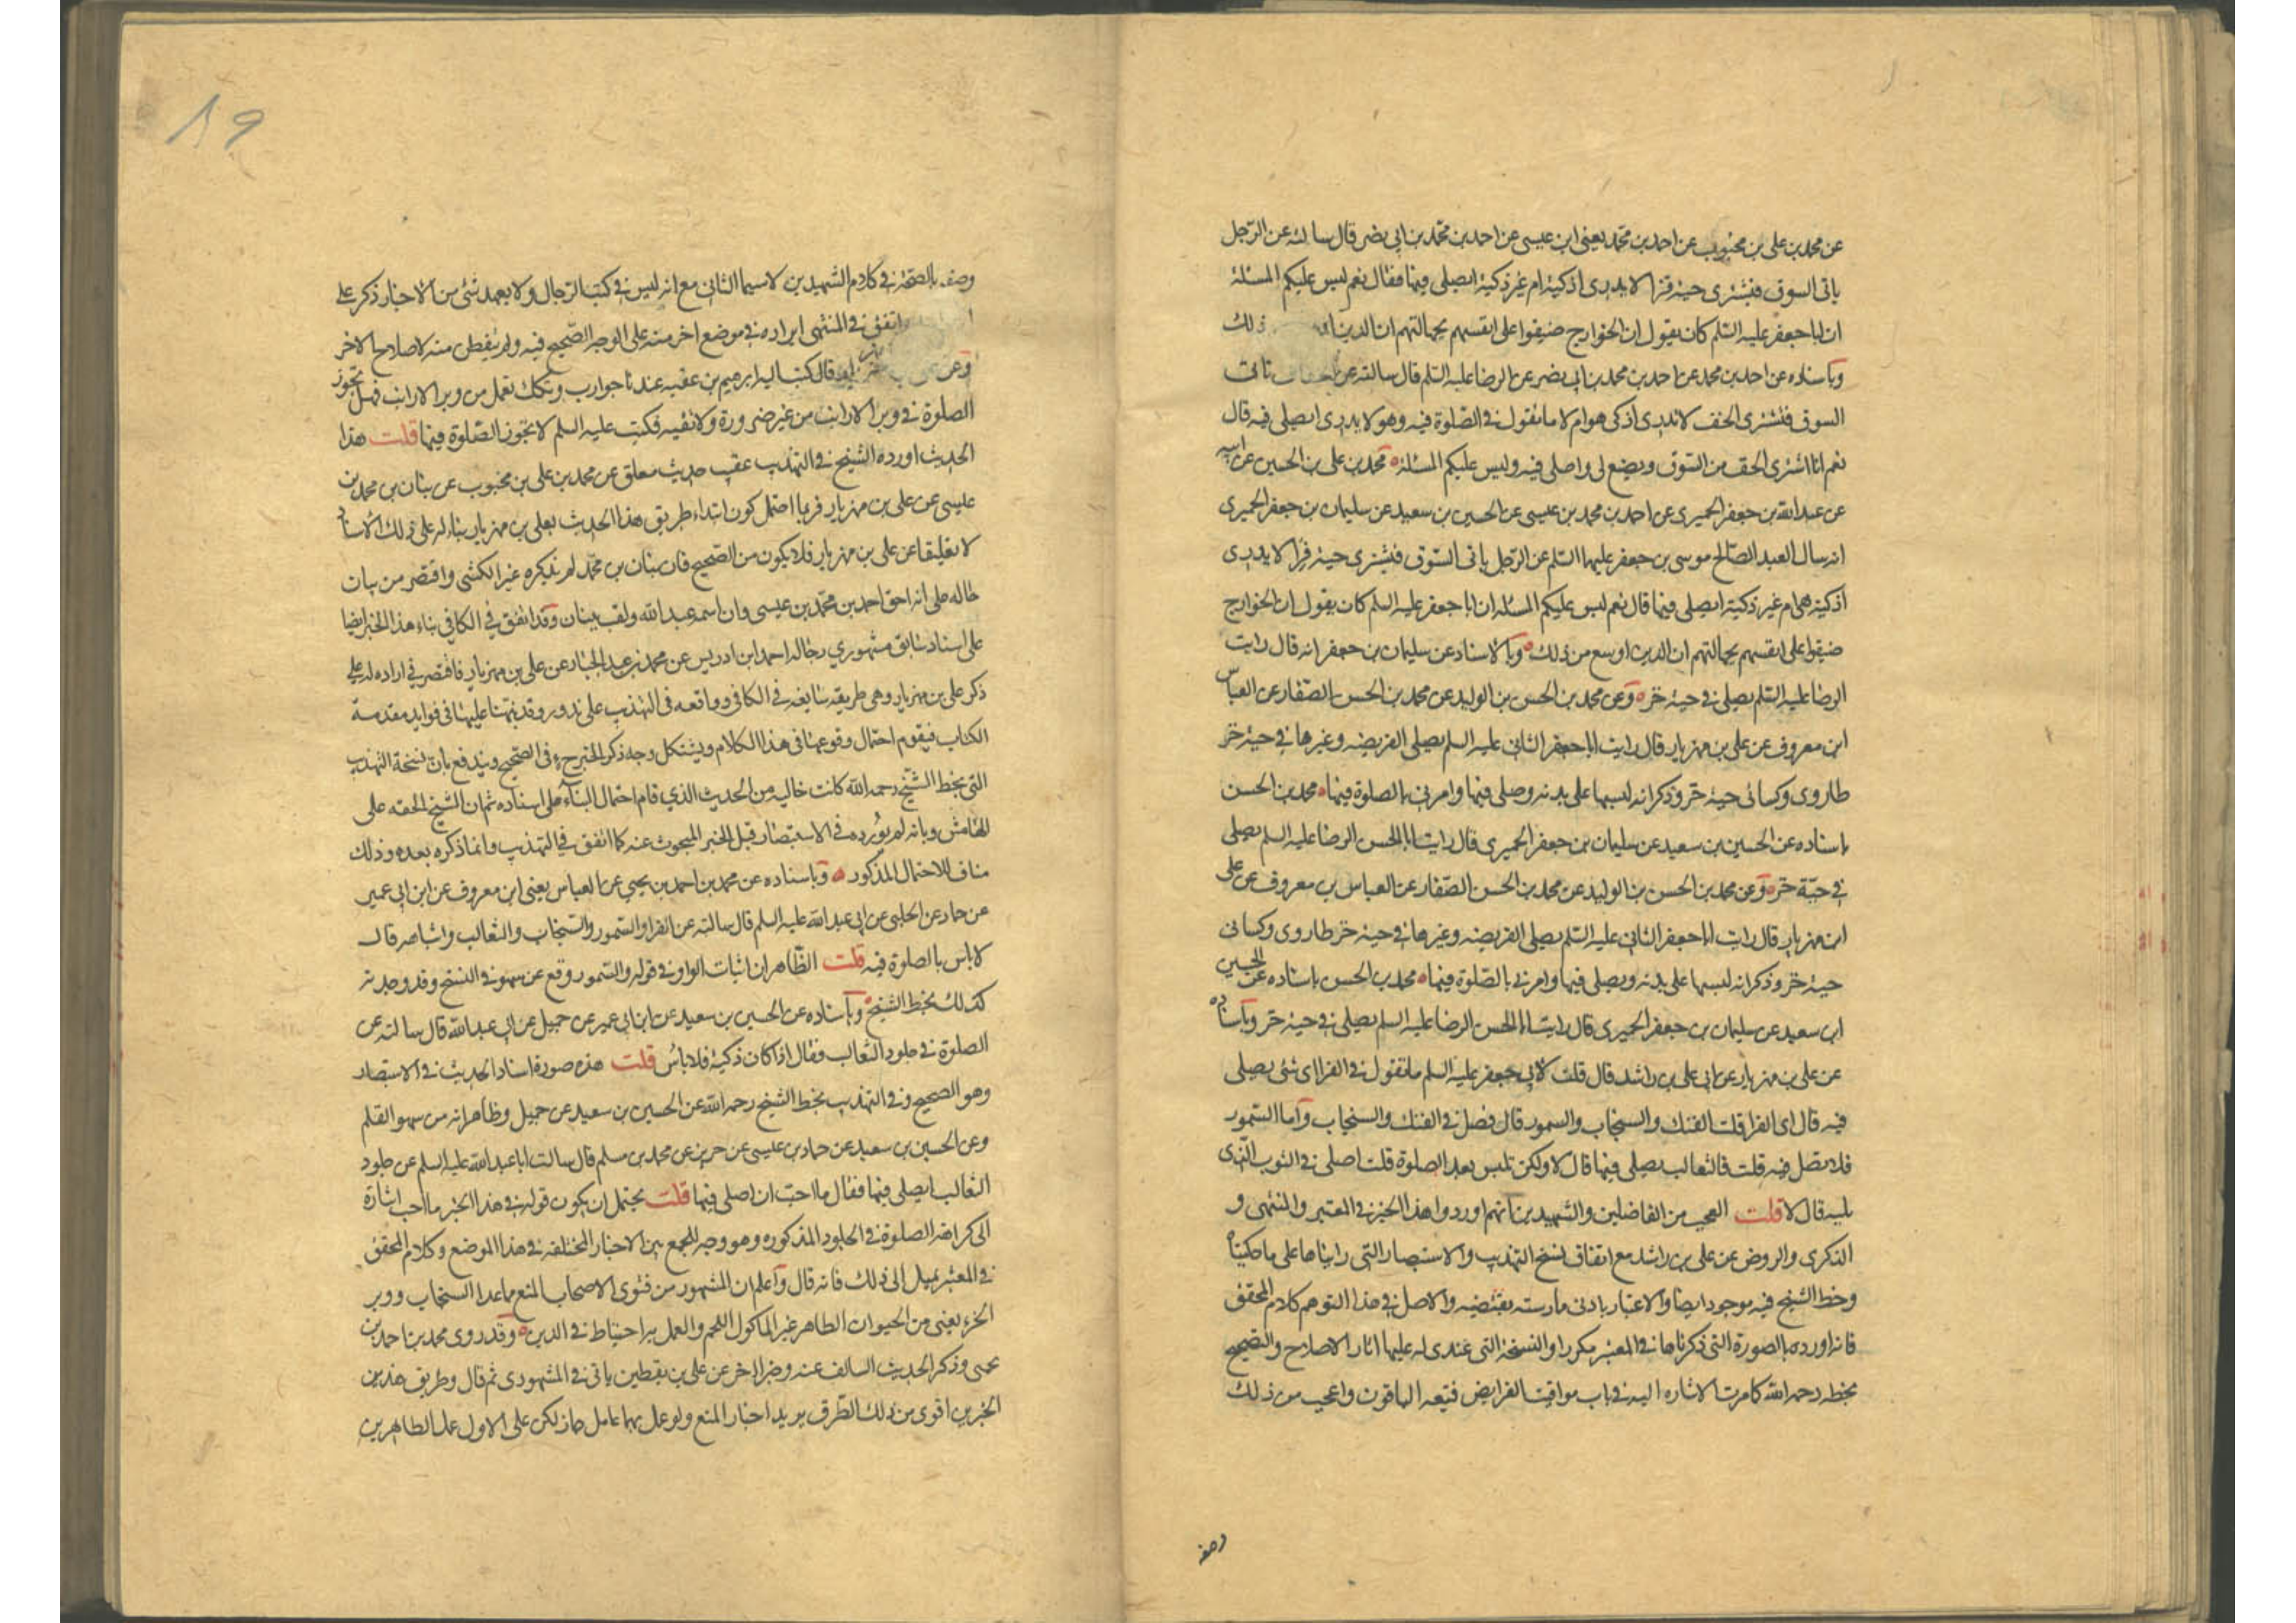 عن محمد بن علي بن محبوب عن احمد بن محمد يعني ابن عيسى عن احمد بن محمد بن ابي نصر قال سالته عن الرجل
ياتى السوق فيشترى جبة فرا لا يدرى اذكية ام غير ذكية ايصلى فيها فقال نعم ليس عليكم المسئلة
ان ابا جعفر عليه السلم كان يقول ان الخوارج ضيقوا على انفسهم بجهالتهم ان الدين ذلك
وباسناده عن احمد بن محمد عن احمد بن محمد بن ابى نصر عن الرضا عليه السلم قال سالته عن تاتى
السوق فتشترى الخف لا تدرى اذكى هو ام لا ما تقول في الصلوة فيه وهو لا يدرى ايصلى فيه قال
نعم انا اشترى الخف من السوق ويصنع لى واصلى فيه وليس عليكم المسئلة محمد بن على بن الحسين عن ابيه
عن عبد الله بن جعفر الحميرى عن احمد بن محمد بن عيسى عن الحسين بن سعيد عن سليمان بن جعفر الحميرى
انه سال العبد الصالح موسى بن جعفر عليهما السلم عن الرجل ياتى السوق فيشترى جبة فرا لا يدرى
اذكية هى ام غير ذكية ايصلى فيها قال نعم ليس عليكم المسئله ان ابا جعفر عليه السلم كان يقول ان الخوارج
ضيقوا على انفسهم بجهالتهم ان الدين اوسع من ذلك وبالاسناد عن سليمان بن جعفر انه قال رايت
الرضا عليه السلم يصلى في جبة خز وعن محمد بن الحسن بن الوليد عن محمد بن الحسن الصفار عن العباس
ابن معروف عن على بن مهزيار قال رايت ابا جعفر الثانى عليه السلم يصلى الفريضه وغيرها في جبة خز
طاروى وكسانى جبة خز وذكر انه لبسها على بدنه وصلى فيها وامرنى بالصلوة فيها محمد بن الحسن
باسناده عن الحسين بن سعيد عن سليمان بن جعفر الحميرى قال رايت ابا الحسن الرضا عليه السلم يصلى
في جبة خز وعن محمد بن الحسن بن الوليد عن محمد بن الحسن الصفار عن العباس بن معروف عن على
ابن مهزيار قال رايت ابا جعفر الثانى عليه السلم يصلى الفريضه وغيرها في جبة خز طاروى وكسانى
جبة خز وذكر انه لبسها على بدنه ويصلى فيها وامرنى بالصلوة فيها محمد بن الحسن باسناده عن الحسين
ابن سعيد عن سليمان بن جعفر الحميرى قال رايت ابا الحسن الرضا عليه السلم يصلى في جبة خز وباسناده
عن على بن مهزيار عن ابى على بن راشد قال قلت لابى جعفر عليه السلم ما تقول في الفرا اى شئ يصلى
فيه قال اى الفرا قلت الفنك والسنجاب والسمور قال فصل في الفنك والسنجاب واما السمور
فلا تصل فيه قلت فالثعالب يصلى فيها قال لا ولكن تلبس بعد الصلوة قلت اصلى في الثوب الذى
يليه قال لا قلت العجب من الفاضلين والشهيدين انهم اوردوا هذا الخبر في المعتبر والمنتهى و
الذكرى والروض عن على بن راشد مع اتفاق نسخ التهذيب والاستبصار التى رايناها على ما حكيناه
وخط الشيخ فيه موجود ايضا والاعتبار بادنى ممارسته يقتضيه والاصل في هذا التوهم كلام المحقق
فانه اورده بالصورة التى ذكرناها في المعتبر مكررا والنسخة التى عندى له عليها اثار الاصلاح والتصحيح
بخطه رحمه الله كما مرت الاشاره اليه في باب مواقيت الفرايض فتبعه الباقون واعجب من ذلك
وصفه
١٩
وصفه بالصحة في كلام الشهيدين لاسيما الثانى مع انه ليس في كتب الرجال ولا يعهد شئ من الاخبار ذكر على
واتفق في المنتهى ايراده في موضع اخر منه على الوجه الصحيح فيه ولم يتفطن منه لاصلاح الاخر
وعن على بن مهزيار قال كتب اليه ابرهيم بن عقبه عندنا جوارب وتكك تعمل من وبر الارانب فهل تجوز
الصلوة في وبر الارانب من غير ضرورة ولا تقيه فكتب عليه السلم لا تجوز الصلوة فيها قلت هذا
الحديث اورده الشيخ في التهذيب عقيب حديث معلق عن محمد بن على بن محبوب عن بنان بن محمد بن
عيسى عن على بن مهزيار فربما احتمل كون ابتداء طريق هذا الحديث بعلى بن مهزيار بناء له على ذلك الاسناد
لا تعليقا عن على بن مهزيار فلا يكون من الصحيح فان بنان بن محمد لم يذكره غير الكشى واقتصر من بيان
حاله على انه اخو احمد بن محمد بن عيسى وان اسمه عبد الله ولقب ببنان وقد اتفق في الكافي بناء هذا الخبر ايضا
على اسناد سابق مشهورى رجاله احمد ابن ادريس عن محمد بن عبد الجبار عن على بن مهزيار فاقتصر في ايراده له على
ذكر على بن مهزيار وهى طريقه شايعه في الكافى وواقعه فى التهذيب على ندور وقد نبهنا عليها في فوايد مقدمة
الكتاب فيقوم احتمال وقوعها فى هذا الكلام ويشتكل وجه ذكر الخبر ح فى الصحيح ويندفع بان نسخة التهذيب
التى بخط الشيخ رحمه الله كانت خاليه من الحديث الذي قام احتمال البناء على اسناده ثم ان الشيخ الحقه على
الهامش وبانه لم يورده في الاستبصار قبل الخبر المبحوث عنه كما اتفق في التهذيب وانما ذكره بعده وذلك
مناف للاحتمال المذكور وباسناده عن محمد بن احمد بن يحيى عن العباس يعنى ابن معروف عن ابن ابى عمير
عن حماد عن الحلبى عن ابى عبد الله عليه السلم قال سالته عن الفرا والسمور والسنجاب والثعالب واشباهه قال
لا باس بالصلوة فيه قلت الظاهر ان اثبات الواو في قوله والسمور وقع عن سهو في النسخ وقد وجدته
كذلك بخط الشيخ وباسناده عن الحسين بن سعيد عن ابن ابى عمير عن جميل عن ابى عبد الله قال سالته عن
الصلوة في جلود الثعالب فقال اذا كان ذكية فلا باس قلت هذه صورة اسناد الحديث في الاستبصار
وهو الصحيح وفي التهذيب بخط الشيخ رحمه الله عن الحسين بن سعيد عن جميل وظاهر انه من سهو القلم
وعن الحسين بن سعيد عن حماد بن عيسى عن حريز عن محمد بن مسلم قال سالت ابا عبد الله عليه السلم عن جلود
الثعالب ايصلى فيها فقال ما احب ان اصلى فيها قلت يحتمل ان يكون قوله في هذا الخبر ما احب اشارة
الى كراهة الصلوة في الجلود المذكوره وهو وجه للجمع بين الاخبار المختلفه في هذا الموضع وكلام المحقق
في المعتبر يميل الى ذلك فانه قال واعلم ان المشهور من فتوى الاصحاب المنع مما عدا السنجاب ووبر
الخز يعنى من الحيوان الطاهر غير الماكول اللحم والعمل به احتياط في الدين وقد روى محمد بن احمد بن
يحيى وذكر الحديث السالف عنه وخبرا اخر عن على بن يقطين ياتى في المشهورى ثم قال وطريق هذين
الخبرين اقوى من ذلك الطرق يريد اخبار المنع ولو عمل بهما عامل جاز لكن على الاول عمل الظاهرين